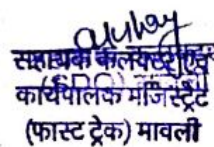 सहायक कलक्टर एवं
कार्यपालक मजिस्ट्रेट
(फास्ट ट्रेक) मावली